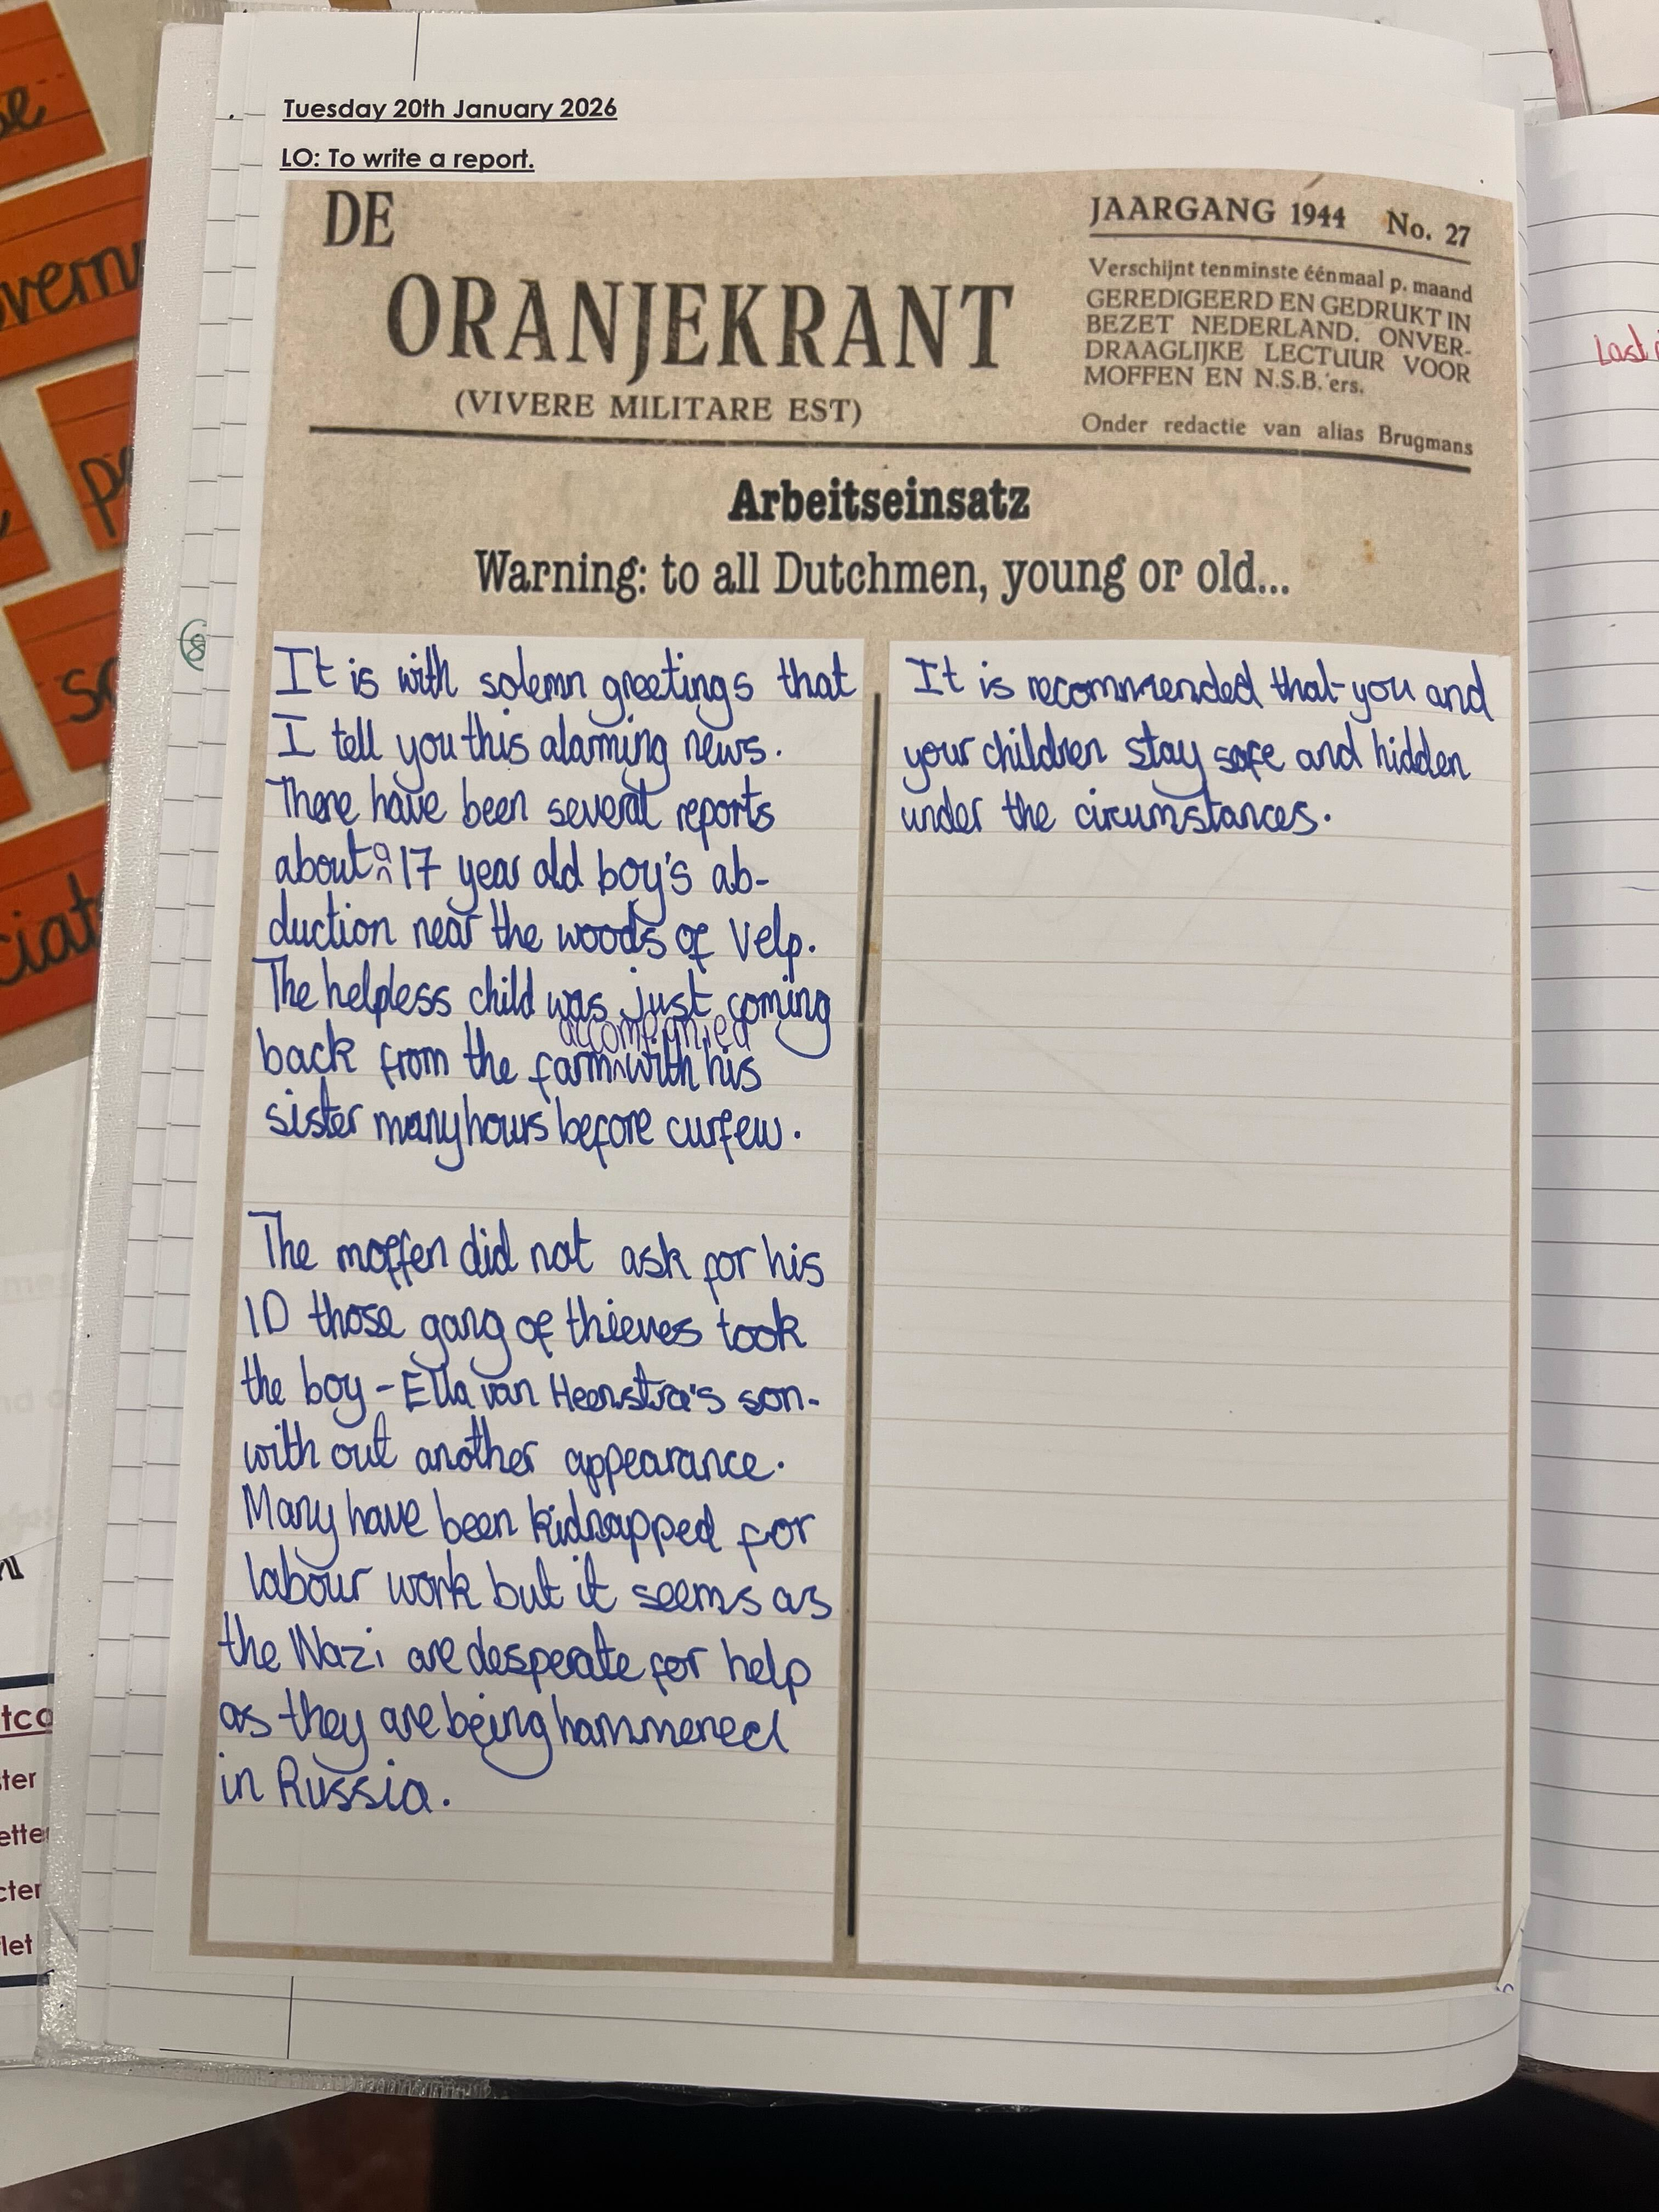 Tuesday 20th January 2026
LO: To write a report.
DE
ORANJEKRANT
(VIVERE MILITARE EST)
JAARGANG 1944 No. 27
Verschijnt tenminste éénmaal p. maand
GEREDIGEERD EN GEDRUKT IN
BEZET NEDERLAND. ONVER-
DRAAGLIJKE LECTUUR VOOR
MOFFEN EN N.S.B.'ers.
Onder redactie van alias Brugmans
Arbeitseinsatz
Warning: to all Dutchmen, young or old...
It is with solemn greetings that
I tell you this alarming news.
There have been several reports
about a 17 year old boy's ab-
duction near the woods of Velp.
The helpless child was just coming
back from the farm accompanied with his
sister many hours before curfew.
The moffen did not ask for his
ID those gang of thieves took
the boy - Ella van Heenstra's son-
with out another appearance.
Many have been kidnapped for
labour work but it seems as
the Nazi are desperate for help
as they are being hammered
in Russia.
It is recommended that you and
your children stay safe and hidden
under the circumstances.